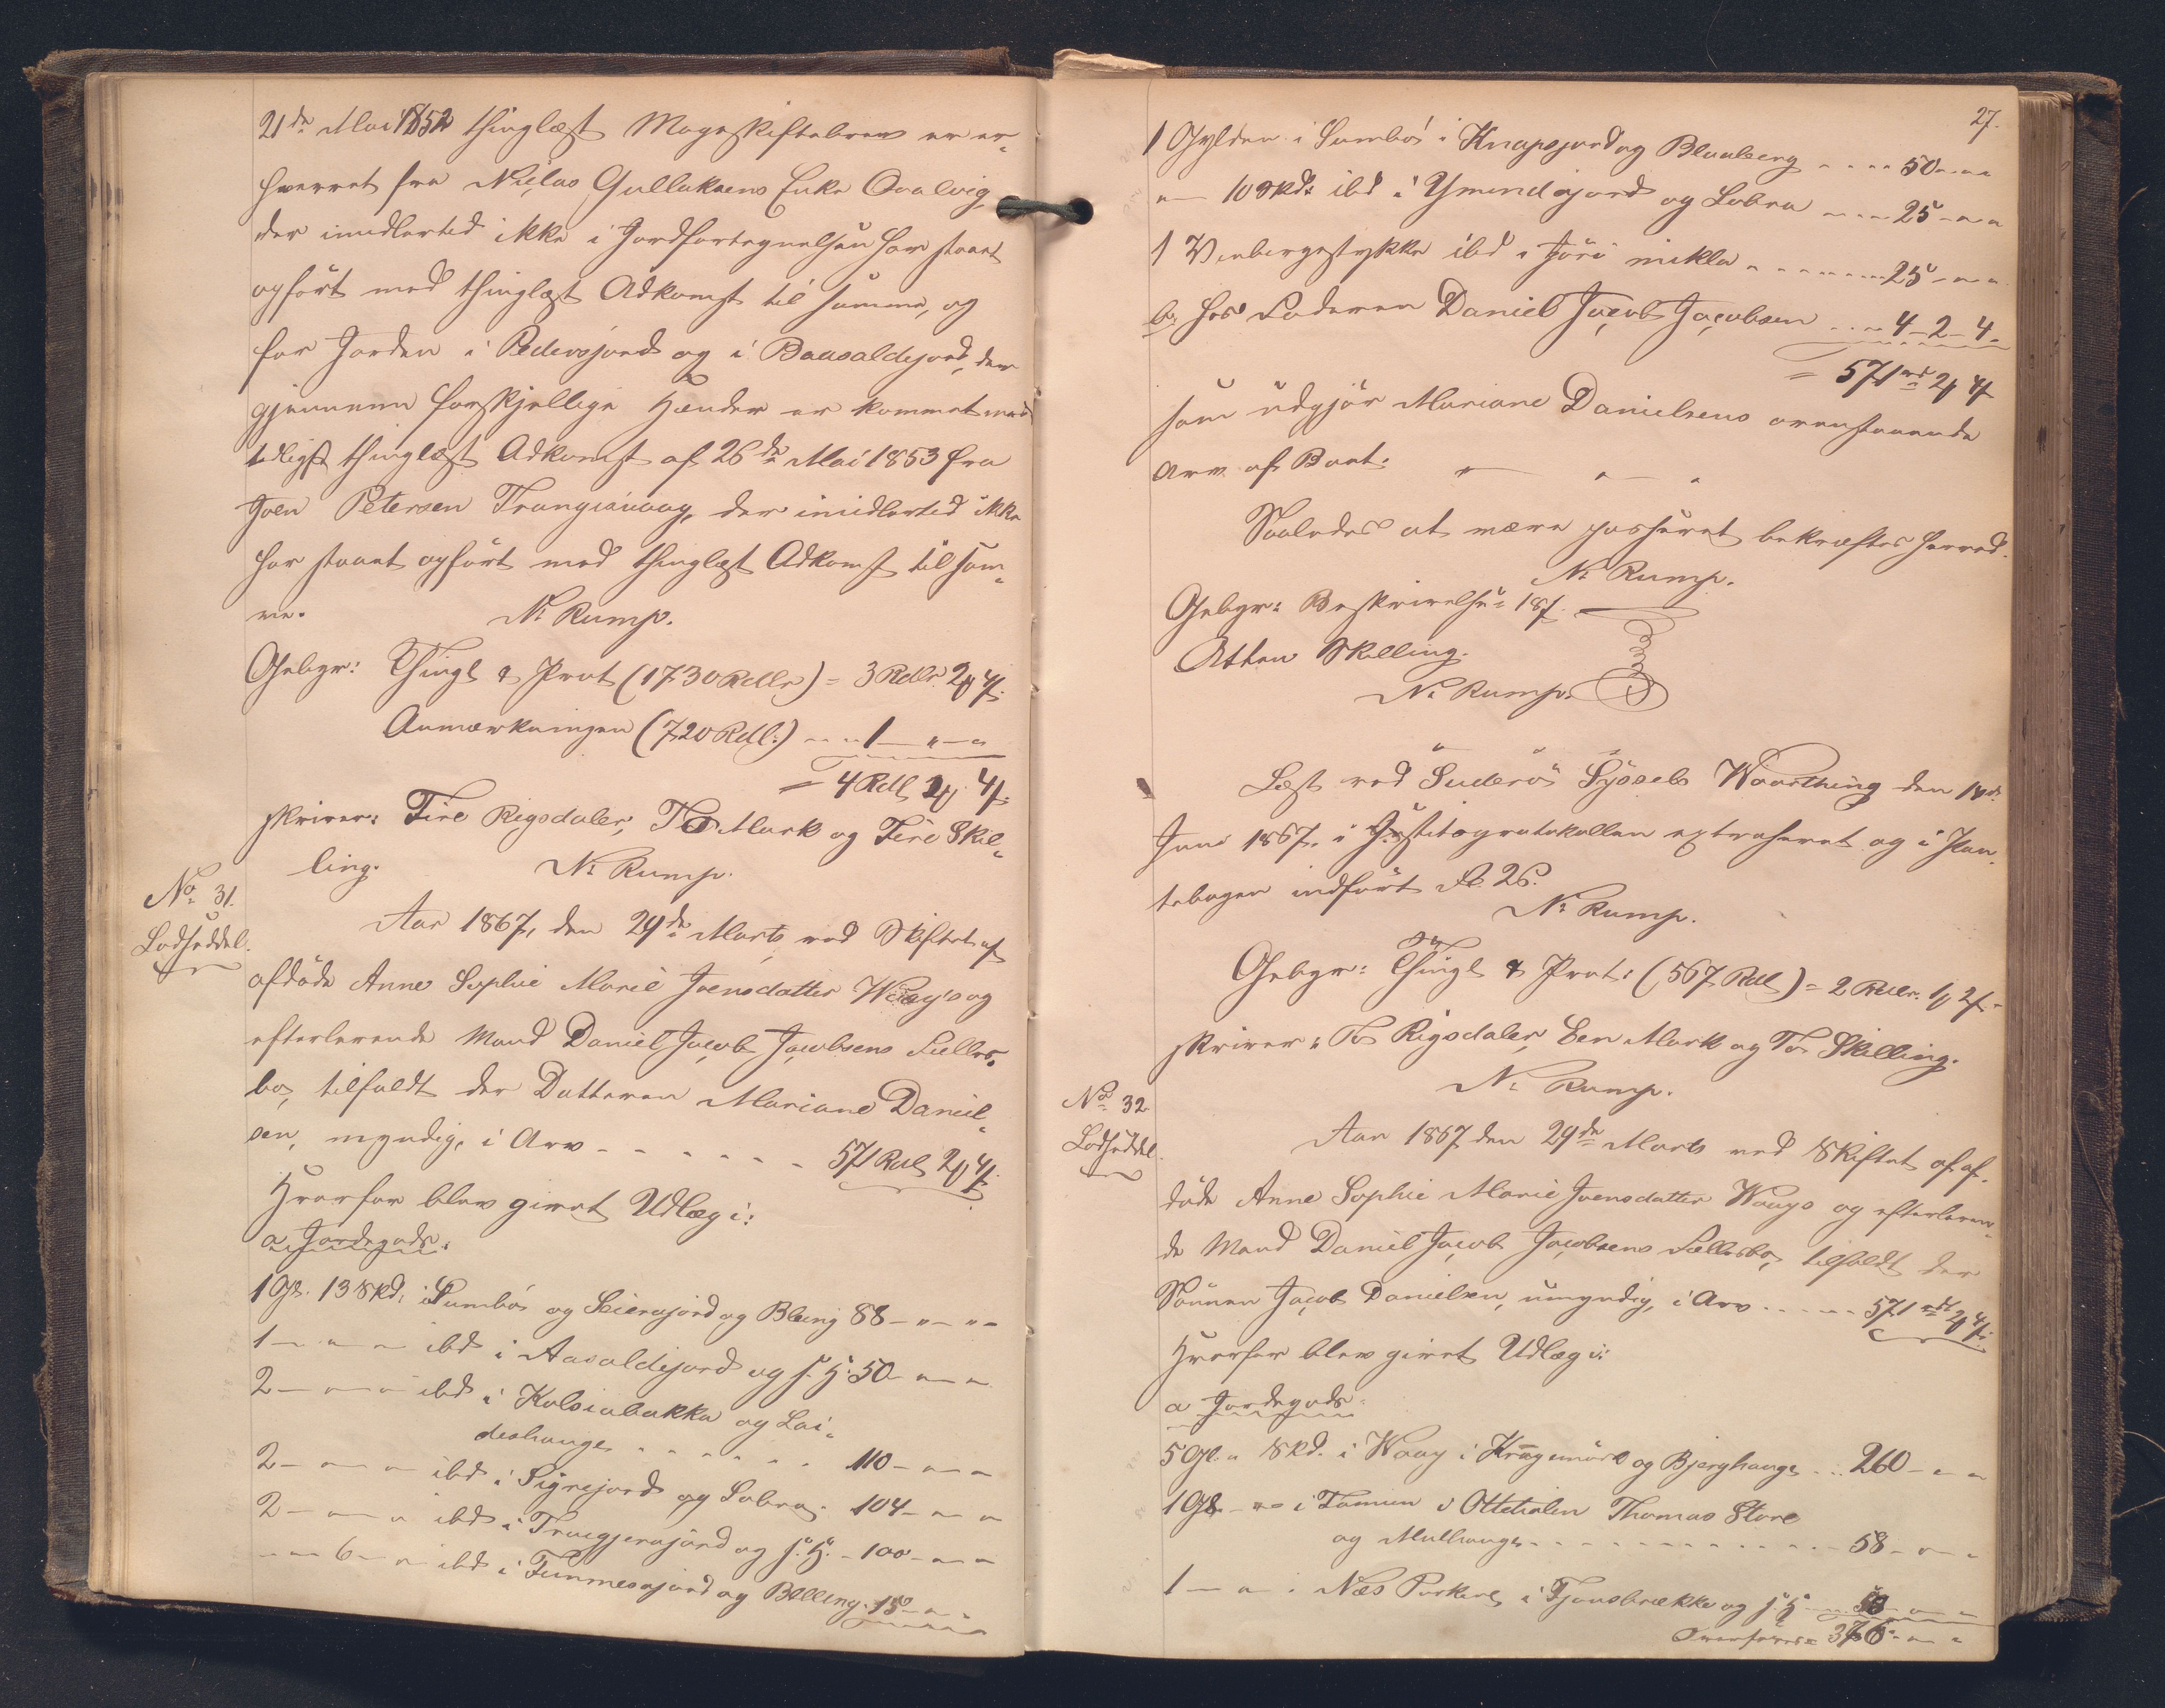 21de Mai 1852 thinglæst Mageskiftebrev er er-
hvervet fra Niclas Gullaksens Enke Ovalvig,
der imidlertid ikke i Jordfortegnelsen har staaet
opført med thinglæst Adkomst til samme, og
for Jorden i Pedersjord og i Baasaldejord, der
gjennem forskjellige Hænder er kommet med
tidligst thinglæst Adkomst af 26de Mai 1853 fra
Joen Petersen Trangisvaag, der imidlertid ikke
har staaet opført med thinglæst Adkomst til sam-
me. N. Rump.
Gebyr: Thingl & Prot (1730 Rdlr) = 3 Rdlr 2 4
Anmærkningen (720 Rdl:) 1 " "
= 4 Rdl 2 4
skriver: Fire Rigsdaler, To Mark og Fire Skil-
ling. N. Rump.
No 31.
Lodseddel.
Aar 1867, den 29de Marts ved Skiftet af
afdøde Anne Sophie Marie Joensdatter Waags og
efterlevende Mand Daniel Jacob Jacobsens Fælles-
bo, tilfaldt der Datteren Mariane Daniel-
sen, myndig, i Arv - - - - - - 571 Rdl 2 4
Hvorfor blev givet Udlæg i:
a, Jordegods:
1 Gl. 13 Skd: i Sumbø og Seierajord og Bleing 88 - " - "
1 - " - ibd i Aasaldejord og s. H: 50 - " - "
2 - " - " ibd i Kalsiabakka og Lai-
deshauge - - - - - - 110 - " - "
2 - " - " ibd i Sigrejord og Lobra - 104 - " - "
2 - " - " ibd i Truegjerajord og s. H. - 100 - " - "
" - 6 - " ibd i Tummesajord og Belling - 15 - " - "
27.
1 Gylden i Sumbø i Knapsjord og Blaaberg - - - - 50 - " - "
" - 10 Skd: ibd i Ymindajord og Lobra - - - 25 - " - "
1 Urebergestykke ibd i Jøri mikla - - - - - - 25 - " - "
b. hos Faderen Daniel Jacob Jacobsen - - - 4 - 2 - 4.
= 571 rd 2 4
som udgjør Mariane Danielsens ovenstaaende
Arv af Boet. " - " - "
Saaledes at være passeret bekræftes herved.
N. Rump.
Gebyr: Beskrivelsen: 18
Atten Skilling.
N. Rump.
Læst ved Suderø Syssels Vaarthing den
Juni 1867, i Justitsprotokollen extraheret og i Pan-
tebogen indført Fol. 26.
N. Rump.
Gebyr: Thingl & Prot: (567 Rdl) = 2 Rdlr. 1 2
skriver: To Rigsdaler, Een Mark og To Skilling.
N. Rump.
No 32.
Lodseddel.
Aar 1867 den 29de Marts ved Skiftet af af-
døde Anne Sophie Marie Joensdatter Waags og efterleven-
de Mand Daniel Jacob Jacobsens Fællesbo, tilfaldt der
Sønnen Jacob Danielsen, umyndig, i Arv - - - - - 571 rd 2 4
Hvorfor blev givet Udlæg i:
a Jordegods:
5 Gl. " Skd. i Waag i Kragemørk og Bjerghauge - - 260 - " - "
1 Gl. - " - " i Famien i Thomas Store
og Mulhauge - - - - - - - - - - - - 58 - " - "
1 - " - " i Næs i Tjønsbrække og s. H - - 58 - " - "
Overføres = 376 - " - "